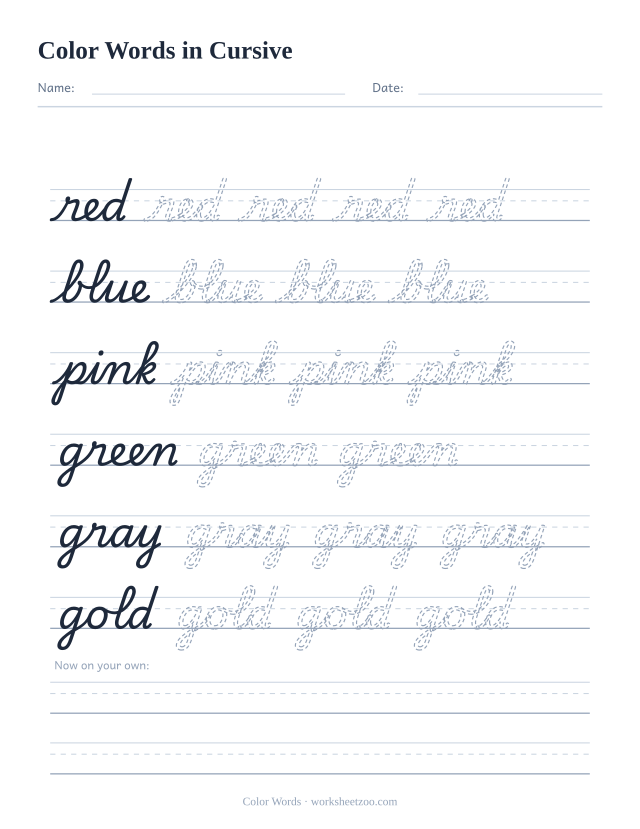 Color Words in Cursive
Name: Date:
red red red red red
blue blue blue blue
pink pink pink pink
green green green
gray gray gray gray
gold gold gold gold
Now on your own:
Color Words · worksheetzoo.com